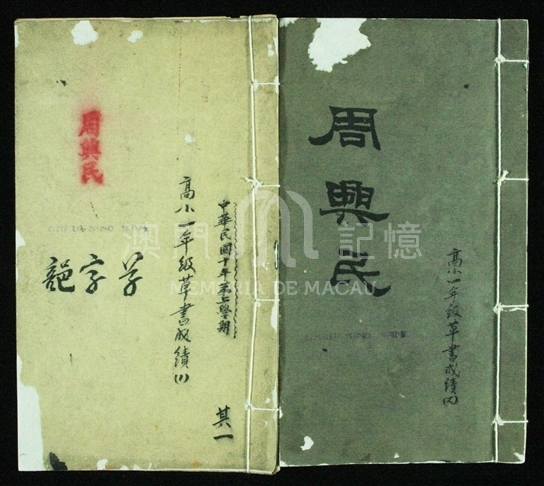 中華民國十年
學期
高小一年級草書成績(1)
其一
周興民
字
高小一年級草書成績
周興民
澳門記憶
MEMÓRIA DE MACAU